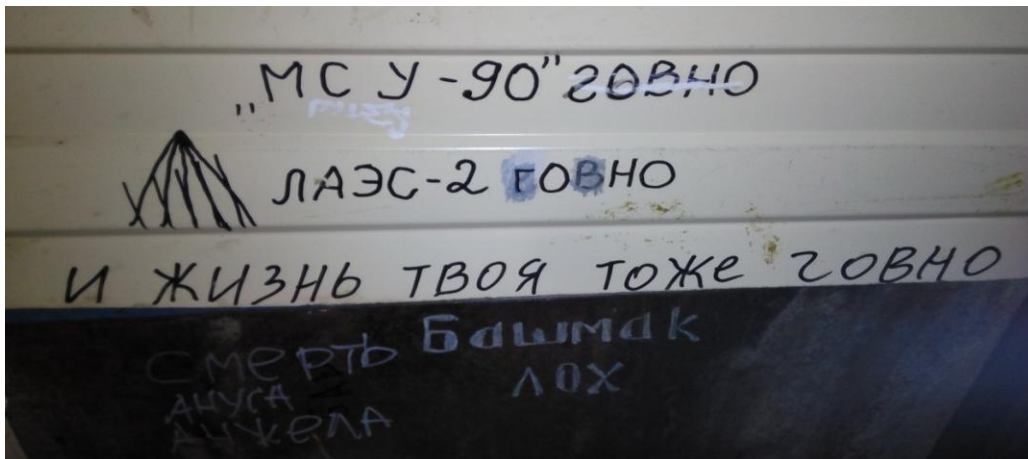 „МСУ-90” говно
ЛАЭС-2 говно
и жизнь твоя тоже говно
Башмак
лох
смерть
ануса
анжела